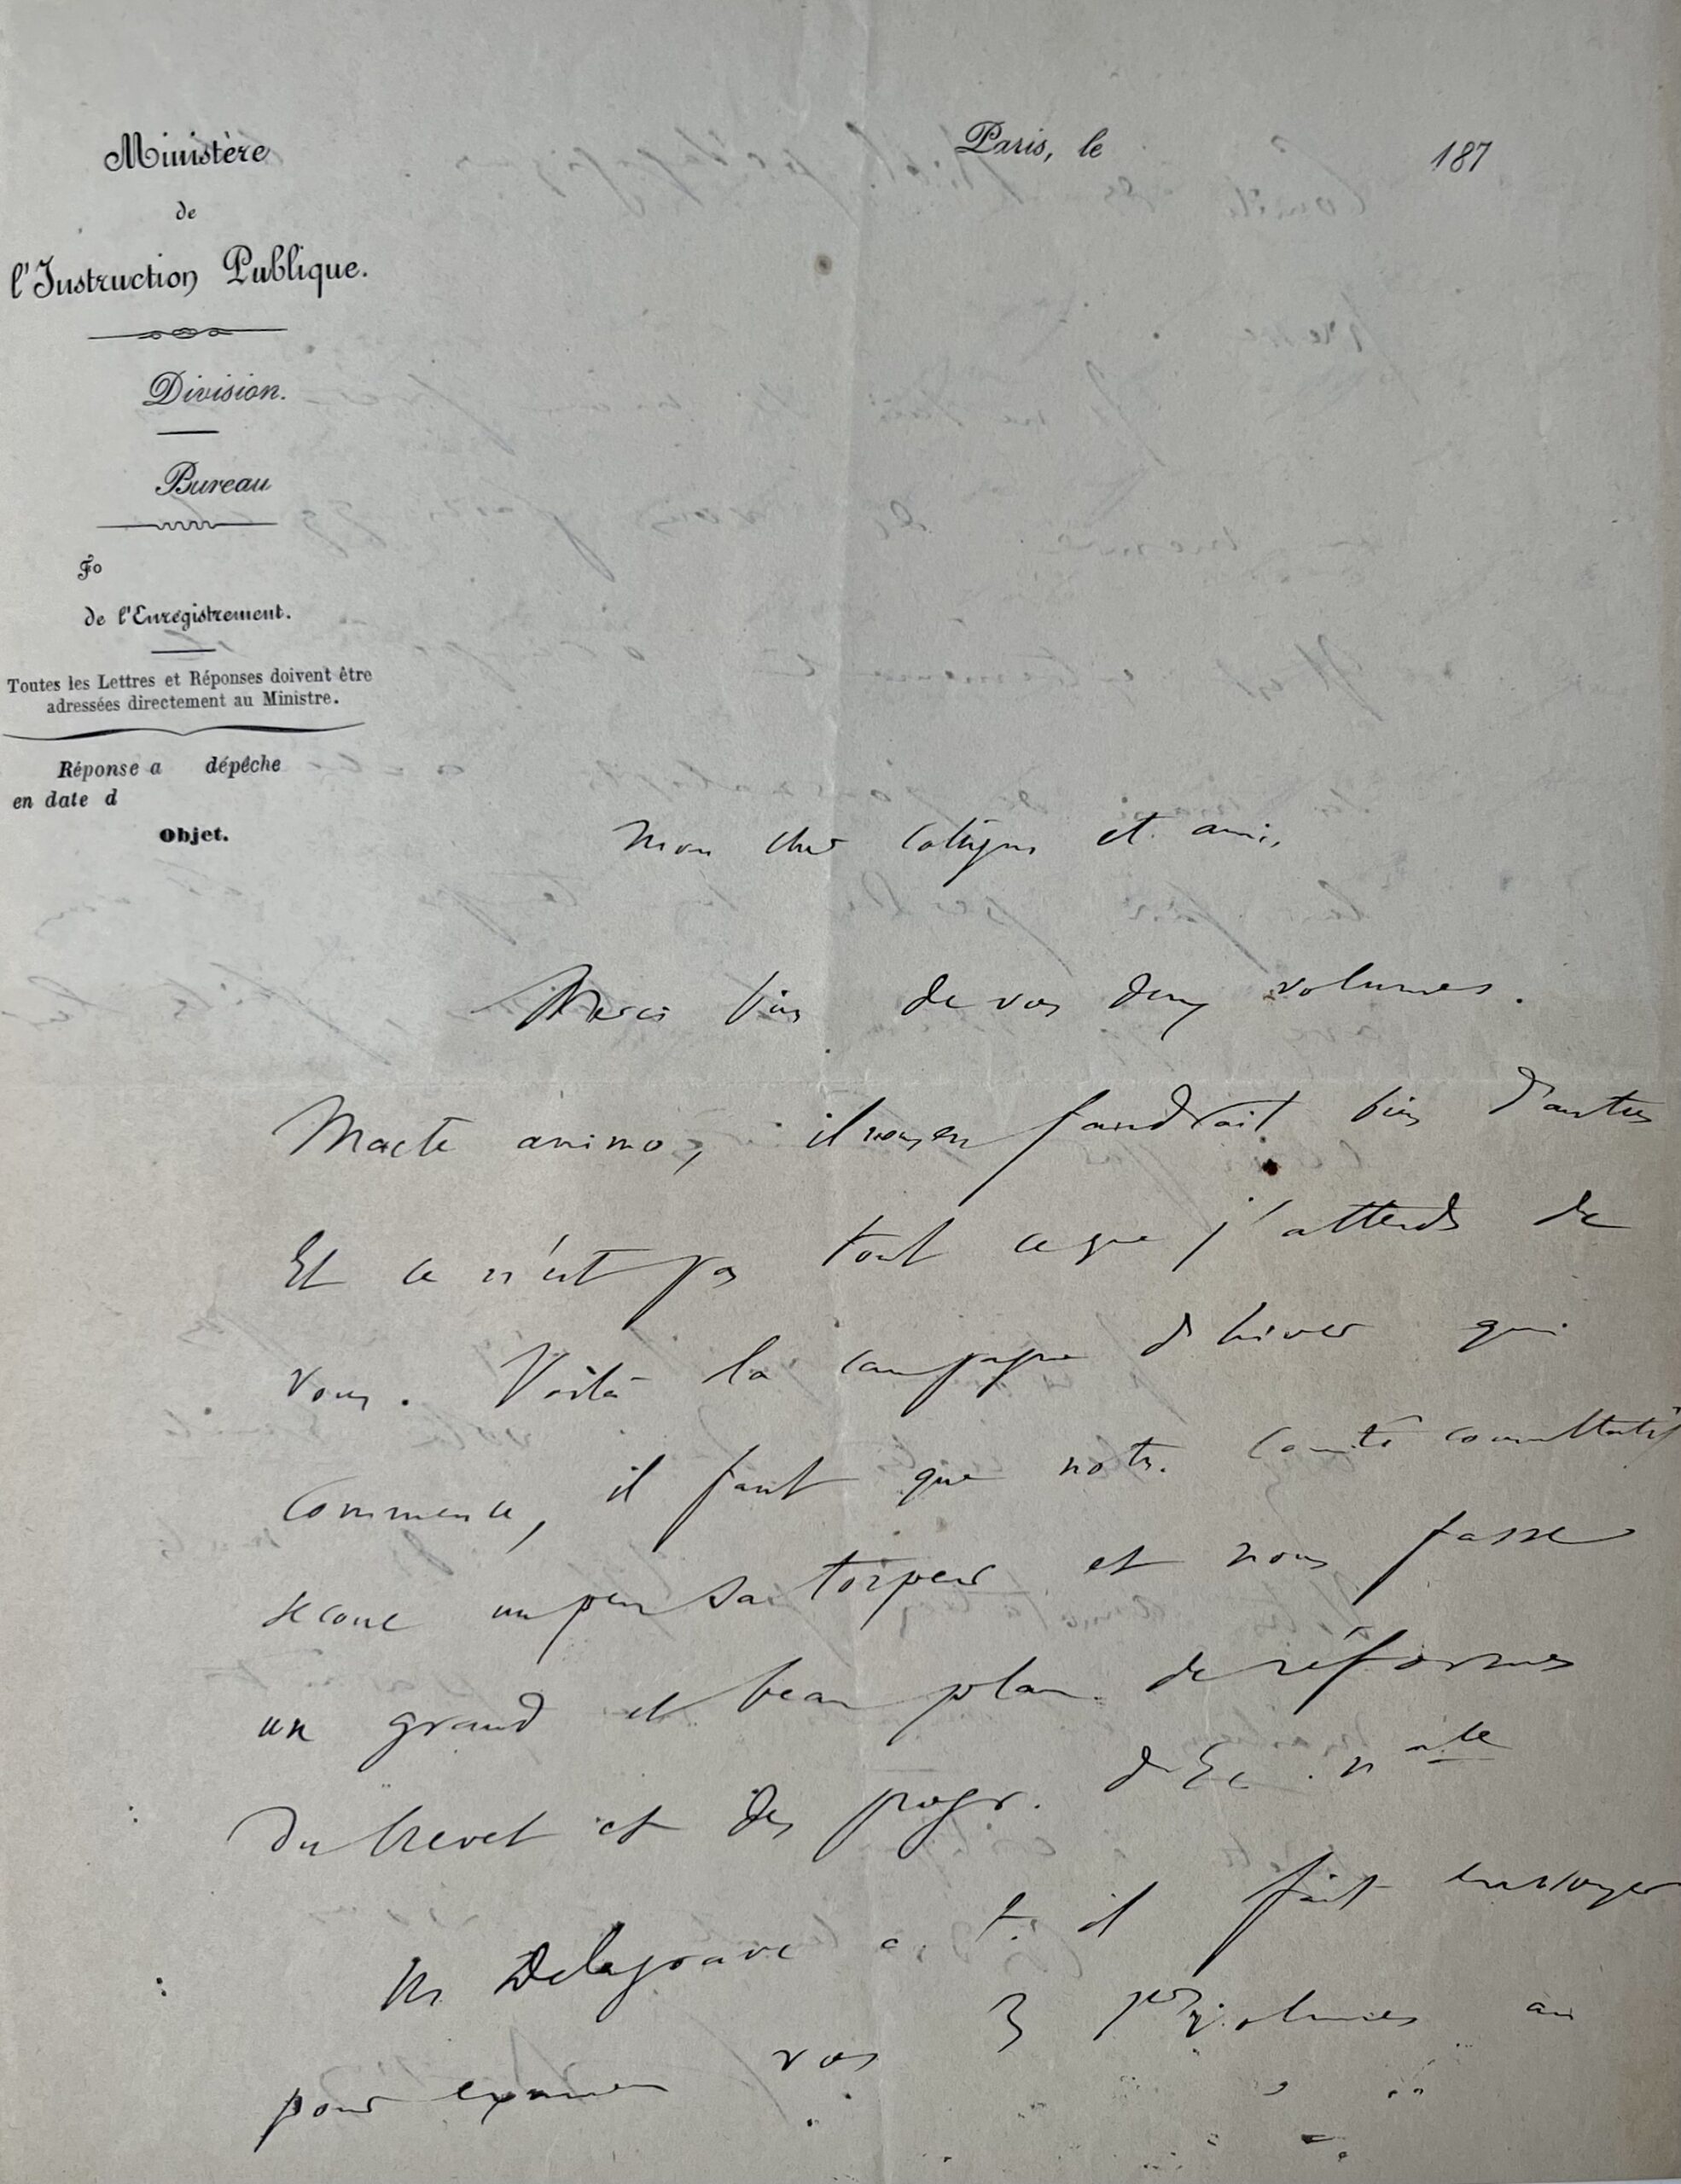 Ministère
de
l'Instruction Publique.
Division.
Bureau
Fo
de l'Enregistrement.
Toutes les Lettres et Réponses doivent être
adressées directement au Ministre.
Réponse a dépêche
en date d
Objet.
Paris, le 187
Mon cher collègue et ami,
Merci bien de vos deux volumes.
Macte animo, il nous en faudrait bien d'autres
Et ce n'est pas tout ce que j'attends de
vous. Voilà la campagne d'hiver qui
commence, il faut que notre Comité consultatif
secoue un peu sa torpeur et nous fasse
un grand et beau plan de réformes
du brevet et des progr. d'Ec. nale
Mr Delagrave a-t-il fait envoyer
pour examen vos 3 pers volumes au